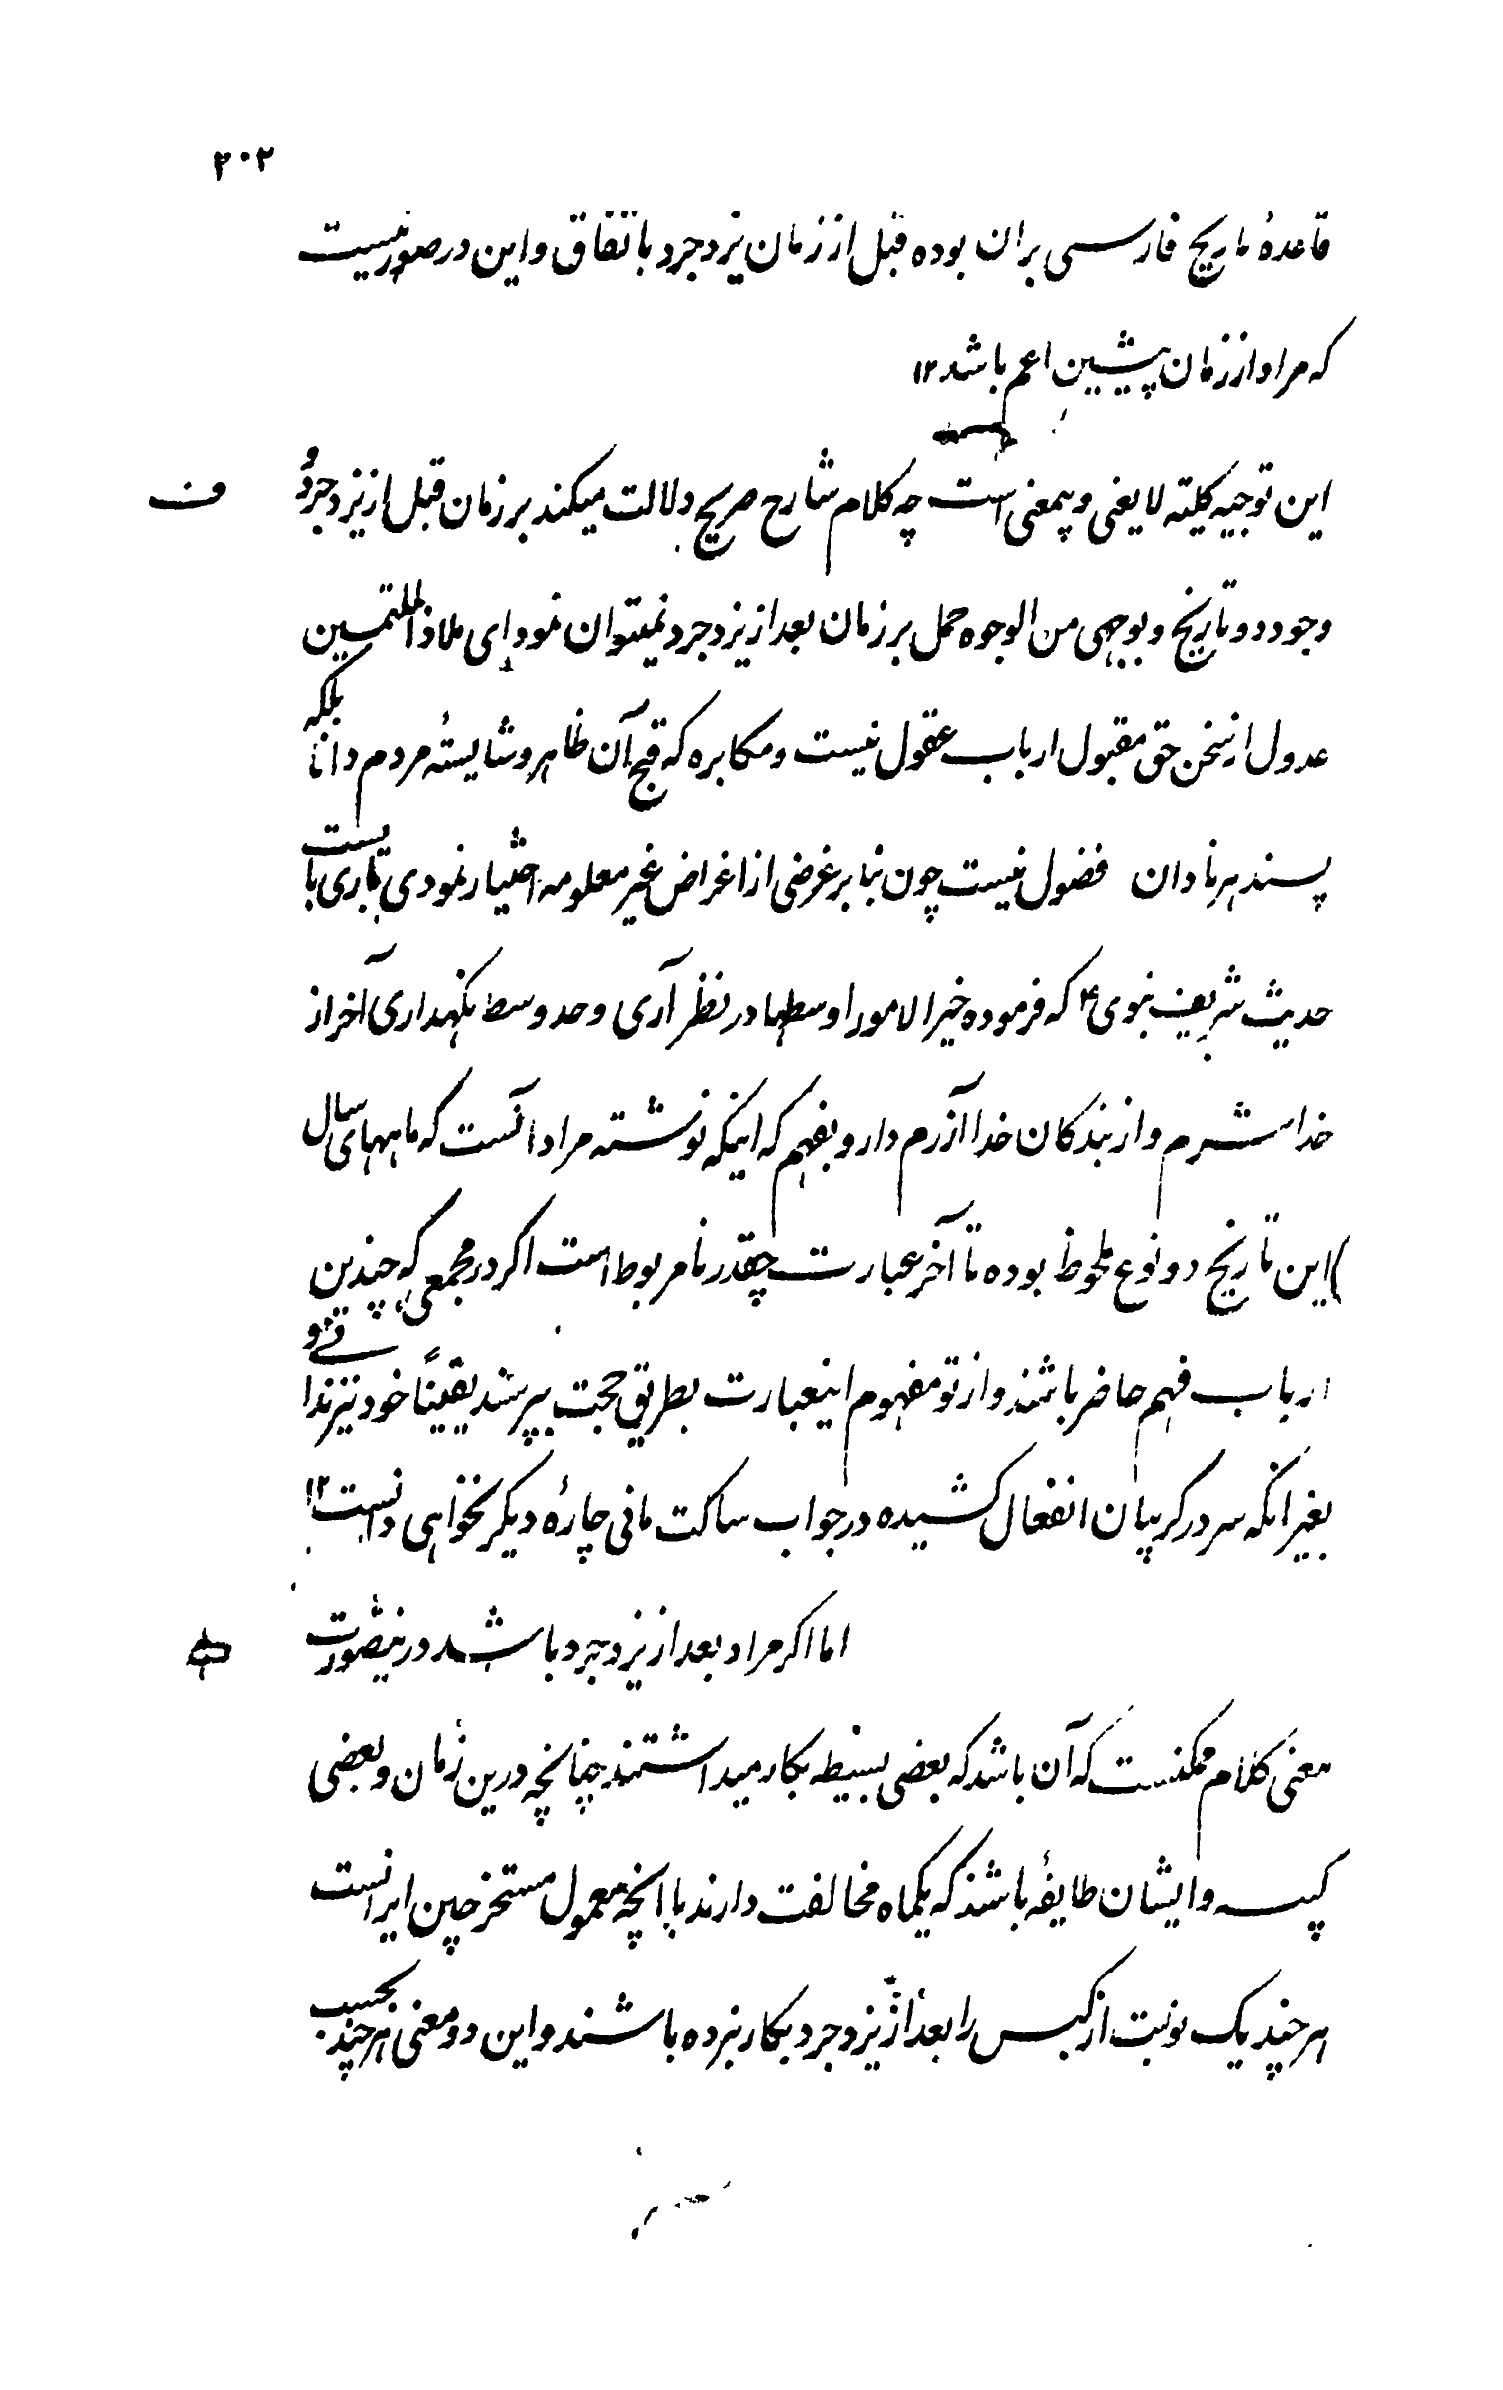 ۲۰۲
قاعدهٔ تاریخ فارسی بران بوده قبل از زمان یزدجرد باتفاق و این در صورتیست
که مراد از زمان پیشین اعم باشد ۱۲
این توجیه کلیته لایغنی و بیمعنی است چه کلام شارح صریح دلالت میکند بر زمان قبل از یزدجرد و
ف
وجود دو تاریخ و بوجهی من الوجوه حمل بر زمان بعد از یزدجرد نمیتوان نمود ای ملاذ الملتمسین
عدول از سخن حق مقبول ارباب عقول نیست و مکابره که قبح آن ظاهر و شایستهٔ مردم دانا بلکه
پسند هر نادان فضول نیست چون بنابر غرضی از اغراض غیر معلومه اختیار نمودی باری بایست
حدیث شریف نبوی ؐ که فرموده خیر الامور اوسطها در نظر آری و حد وسط نگهداری آخر از
خدا شرم و از بندکان خدا آزرم دار و بفهم که اینکه نوشته مراد انست که ماههای سال
این تاریخ دو نوع ملحوظ بوده تا آخر عبارت چقدر نامربوط است اکر در مجمعی که چندین
ارباب فهم حاضر باشند و از تو مفهوم اینعبارت بطریق حجت بپرسند یقیناً خود نیز ندانی و
بغیر انکه سر در کریبان انفعال کشیده در جواب ساکت مانی چارهٔ دیکر نخواهی دانست ۱۲
اما اکر مراد بعد از یزدجرد باشد درینصورت
معنی کلام ممکنست که آن باشد که بعضی بسیطه بکار میداشتند چنانچه درین زمان و بعضی
کبیسه و ایشان طایفهٔ باشند که یکماه مخالفت دارند با انچه معمول مستخرجین ایرانست
هر چند یک نوبت از کبس را بعد از یزدجرد بکار نبرده باشند و این دو معنی هر چند بحسب